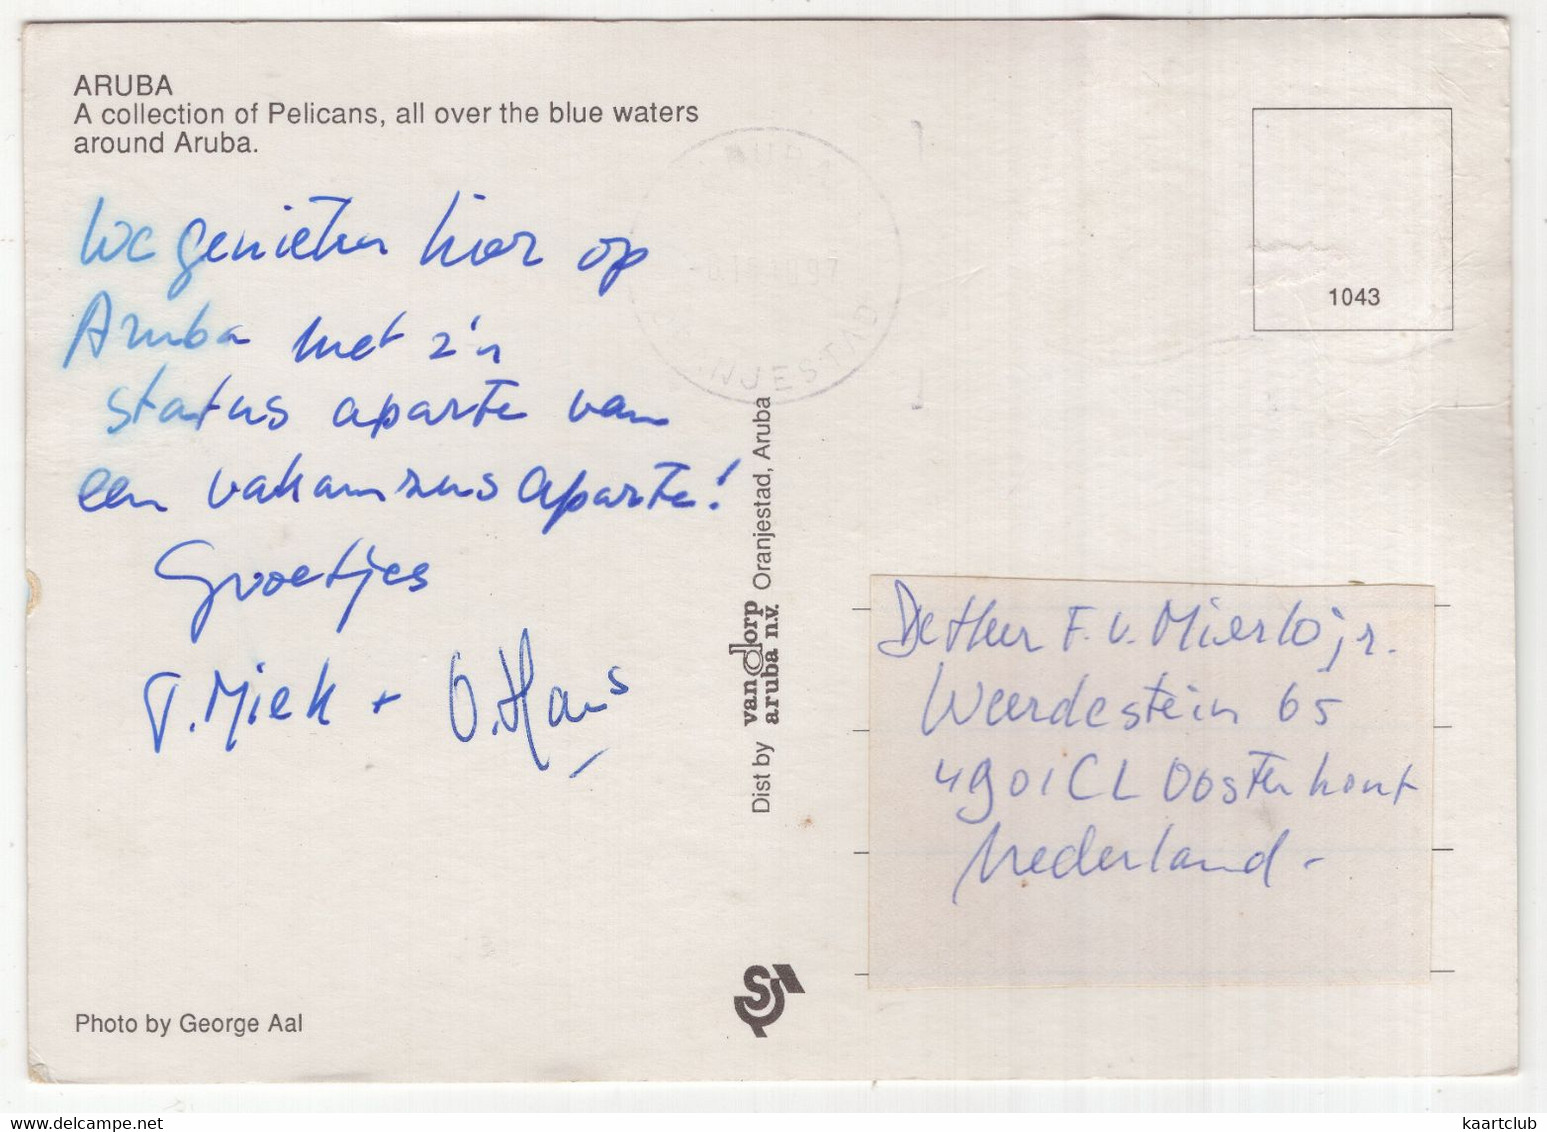 ARUBA
A collection of Pelicans, all over the blue waters
around Aruba.
We genieten hier op
Aruba met z'n
status aparte van
een vakanzus aparte!
Groetjes
T. Miek + O. Hans
Photo by George Aal
Dist by van dorp aruba n.v. Oranjestad, Aruba
1043
De Heer F. v. Mierlo jr.
Weerdestein 65
4901 CL Oosterhout
Nederland -
kaartclub